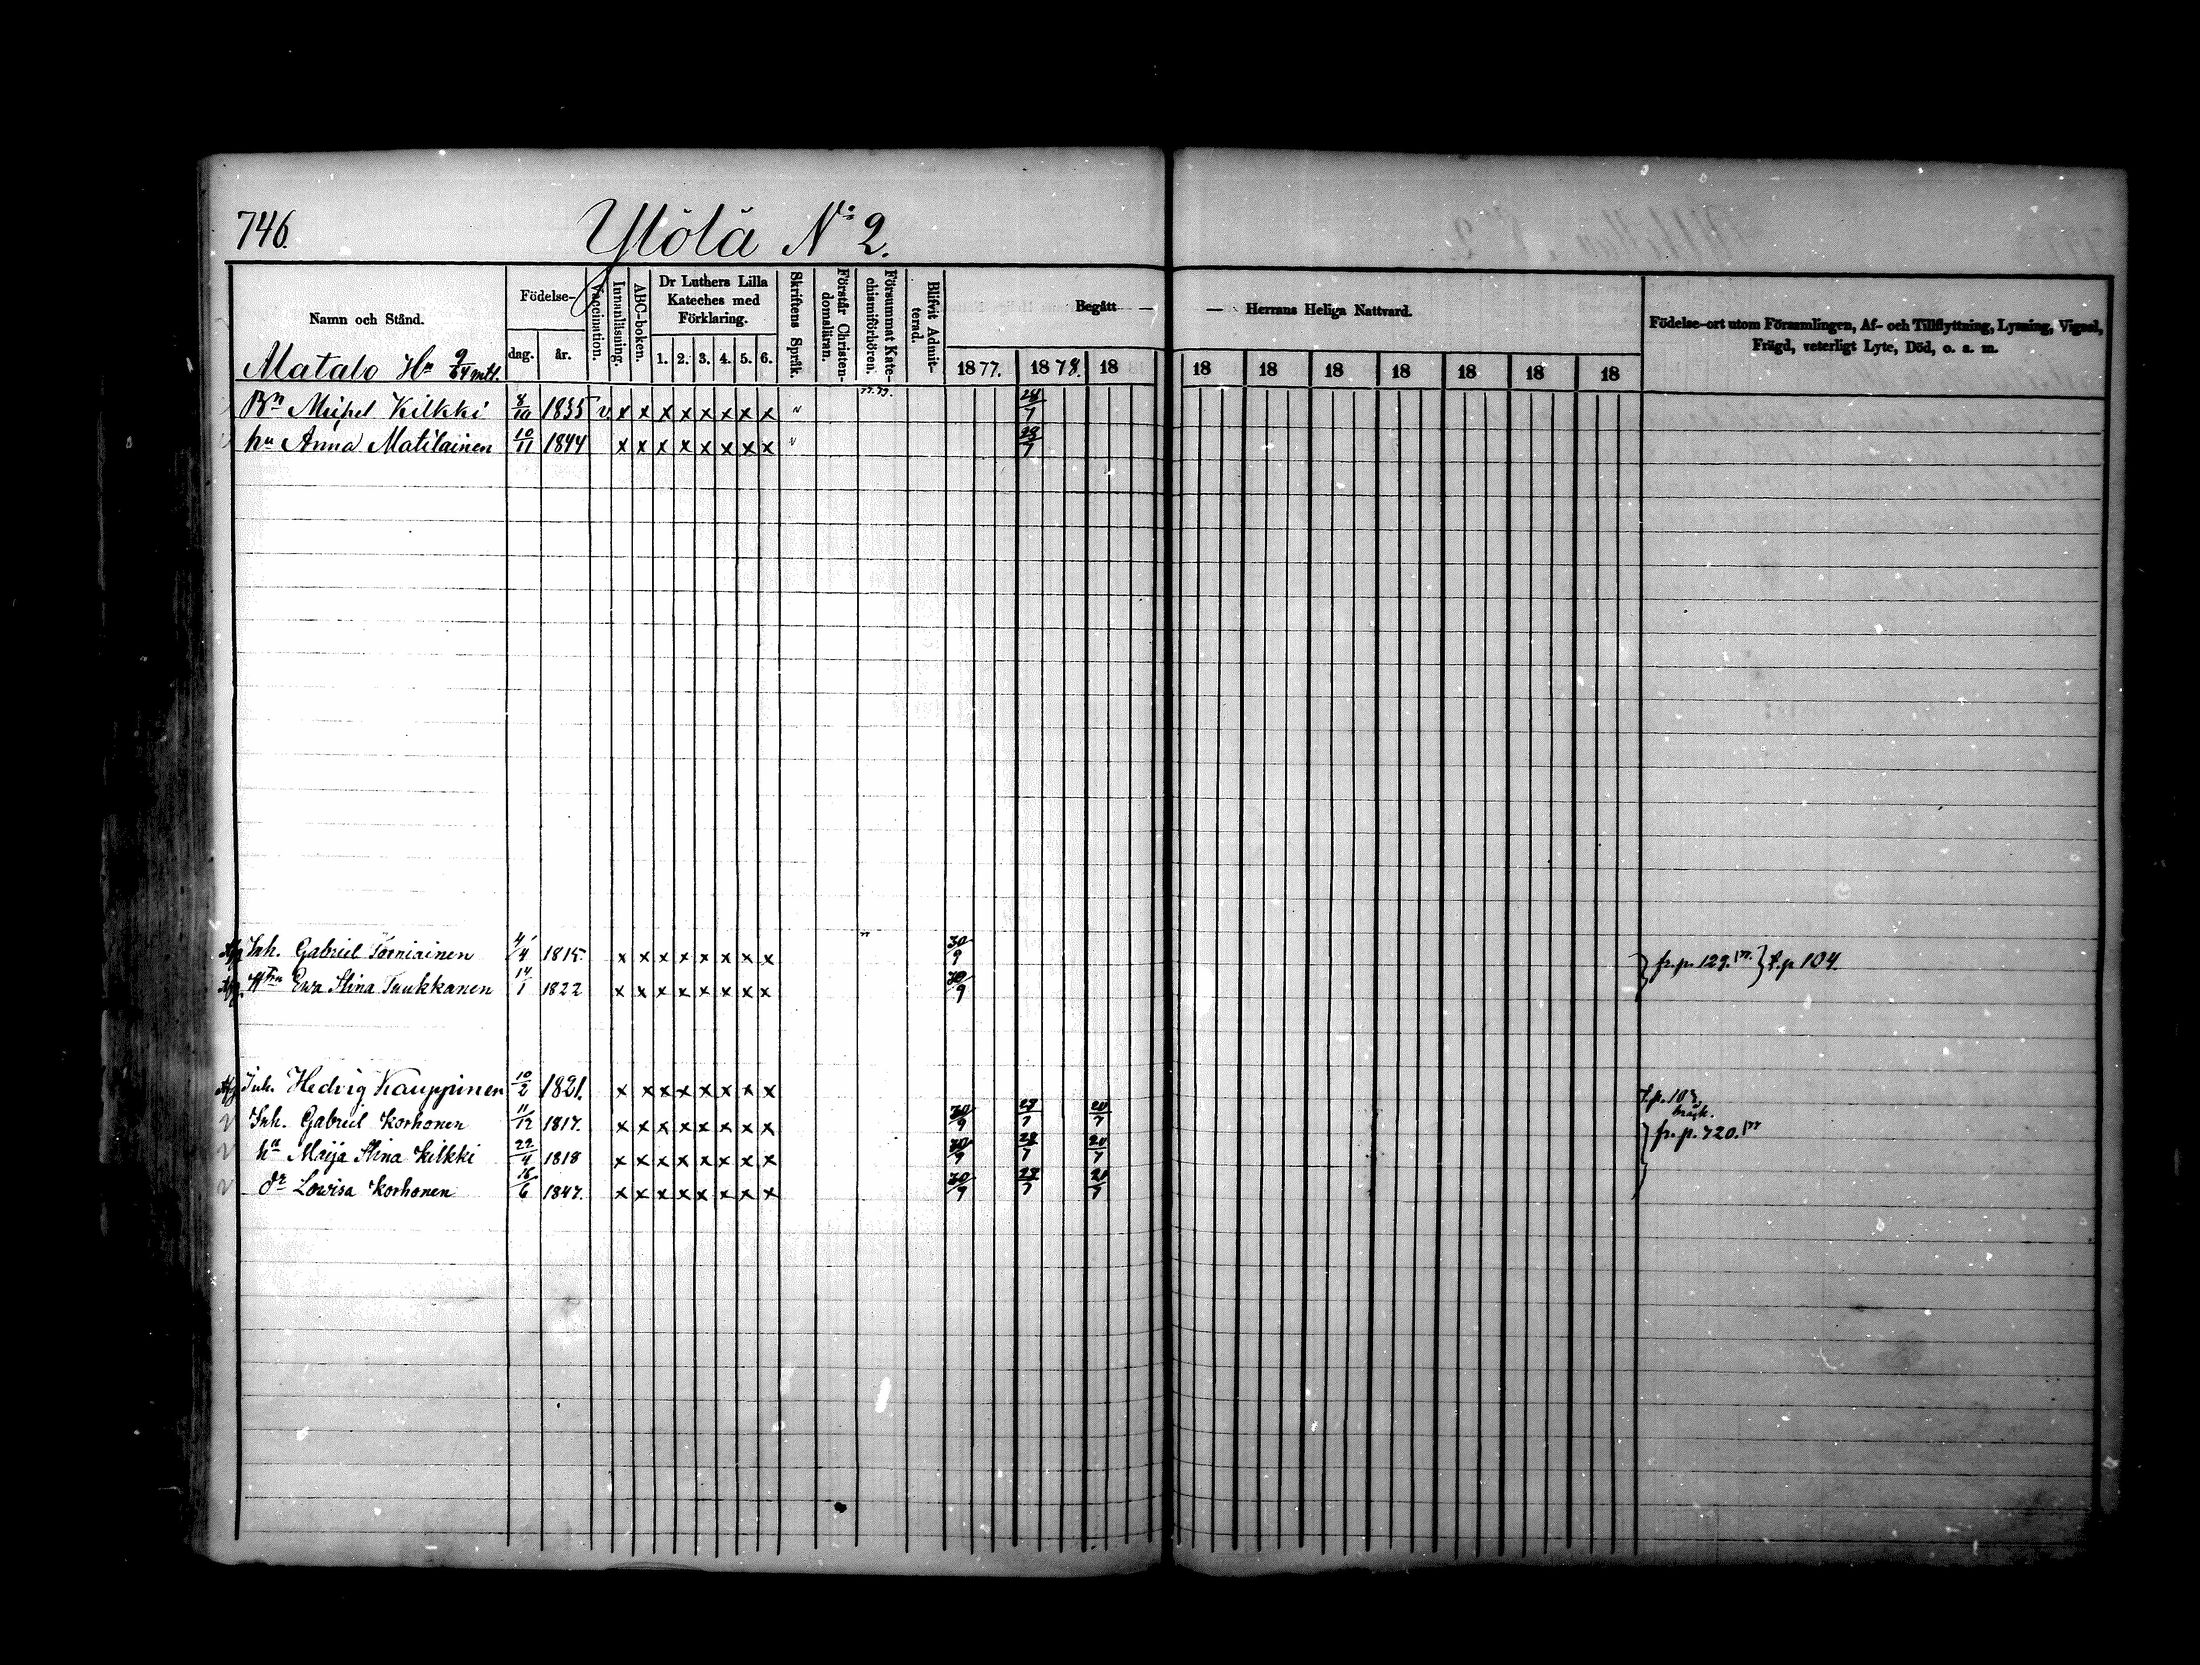 746.
Ylölä N:o 2.
Namn och Stånd.
Födelse-
dag.
år.
Vaccination.
Innanläsning.
ABC-boken.
Dr Luthers Lilla
Kateches med
Förklaring.
1. 2. 3. 4. 5. 6.
Skriftens Språk.
Förstår Christen-
domsläran.
Försummat Kate-
chismiförhören.
Blifvit Admit-
terad.
Begått —
— Herrans Heliga Nattvard.
1877. 1878. 18 18 18 18 18 18 18 18
Födelse-ort utom Församlingen, Af- och Tillflyttning, Lysning, Vigsel,
Frägd, veterligt Lyte, Död, o. a. m.
Matalo Hn
77.79.
Bn Mickel Kilkki 8/10 1835 v x x x x x x x x 28/7
hu Anna Matilainen 10/11 1844 x x x x x x x x 28/7
Inh. Gabriel Torniainen 4/4 1815 x x x x x x x x 30/9 fr. p. 129. 77. t. p 104.
Ewa Stina Tuukkanen 14/1 1822 x x x x x x x x 30/9
Inh. Hedvig Kauppinen 10/2 1821. x x x x x x x x
Inh. Gabriel Korhonen 11/12 1817. x x x x x x x x 30/9 28/7 20/7 fr. p. 720. 77
hu Maija Stina Kilkki 22/4 1818 x x x x x x x x 30/9 28/7 20/7
dr Lowisa Korhonen 16/6 1847. x x x x x x x x 30/9 28/7 20/7